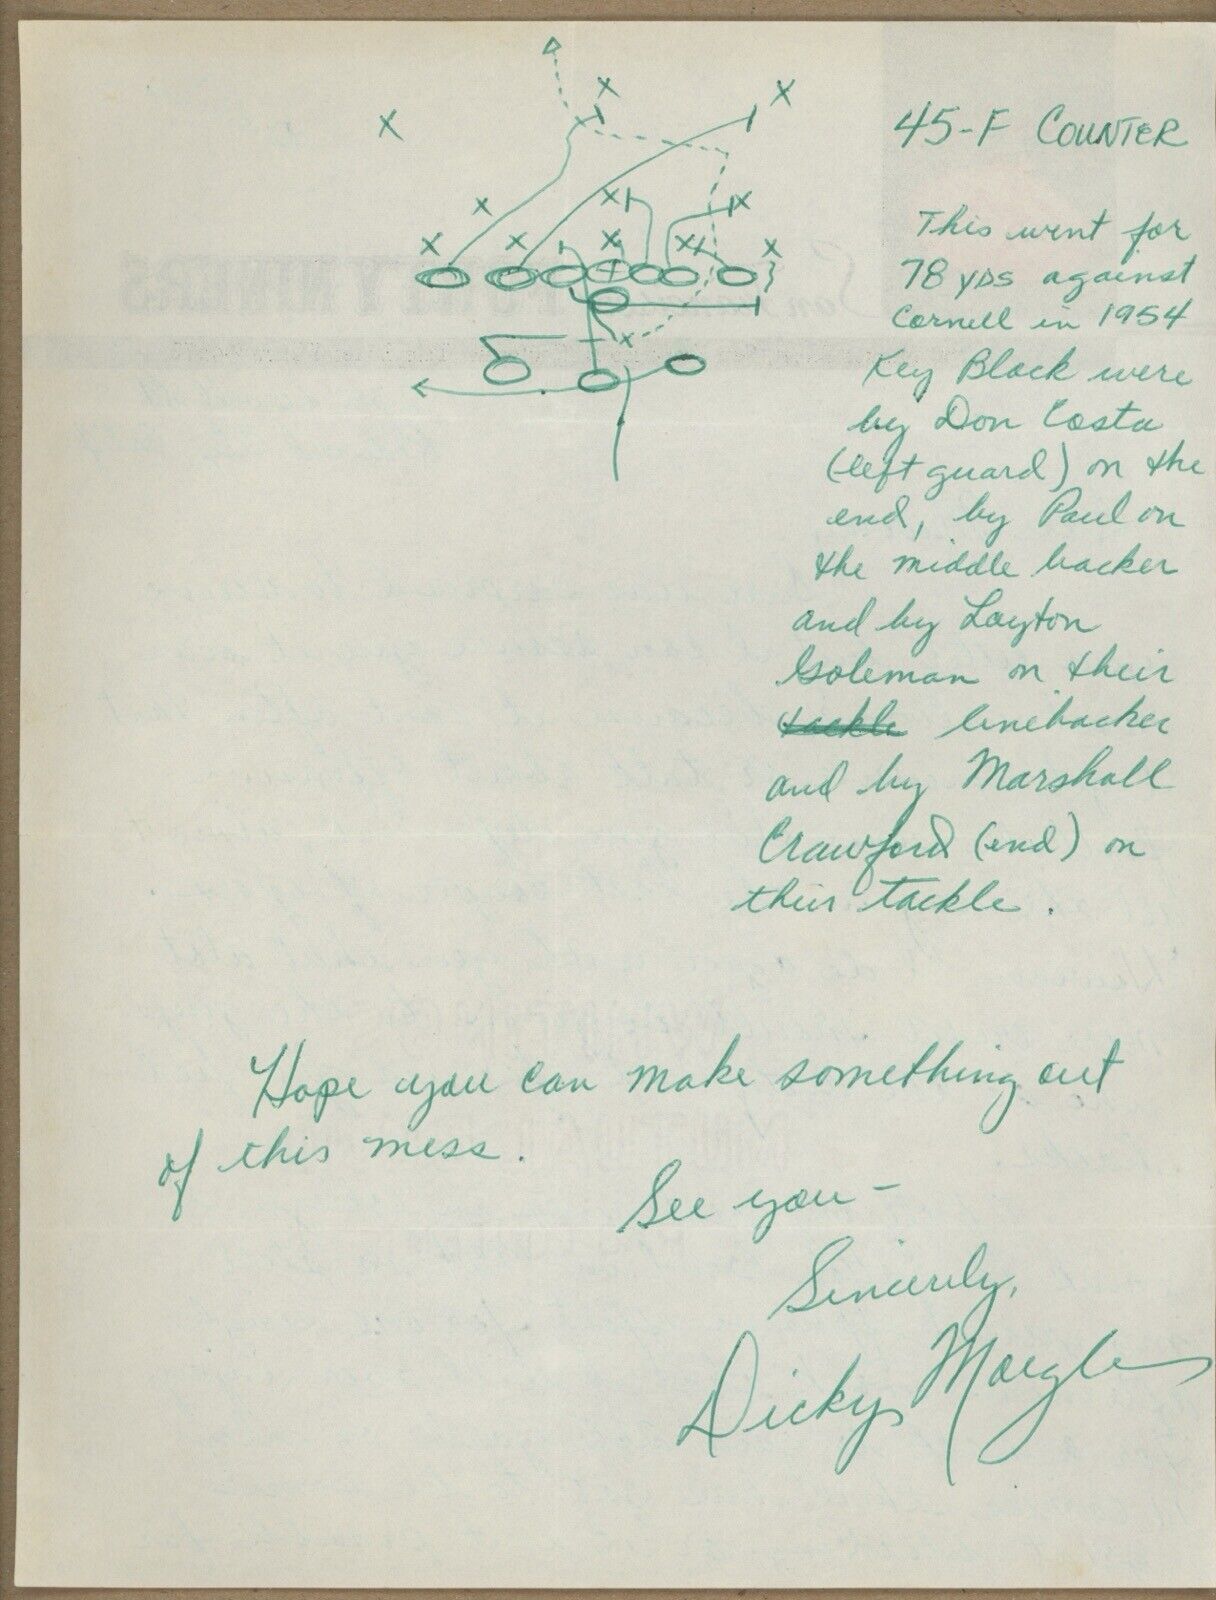 45-F COUNTER
This went for
78 yds against
Cornell in 1954
Key Block were
by Don Costa
(left guard) on the
end, by Paul on
the middle backer
and by Layton
Goleman on their
tackle linebacker
and by Marshall
Crawford (end) on
their tackle.
Hope you can make something out
of this mess.
See you -
Sincerely,
Dicky Moegle